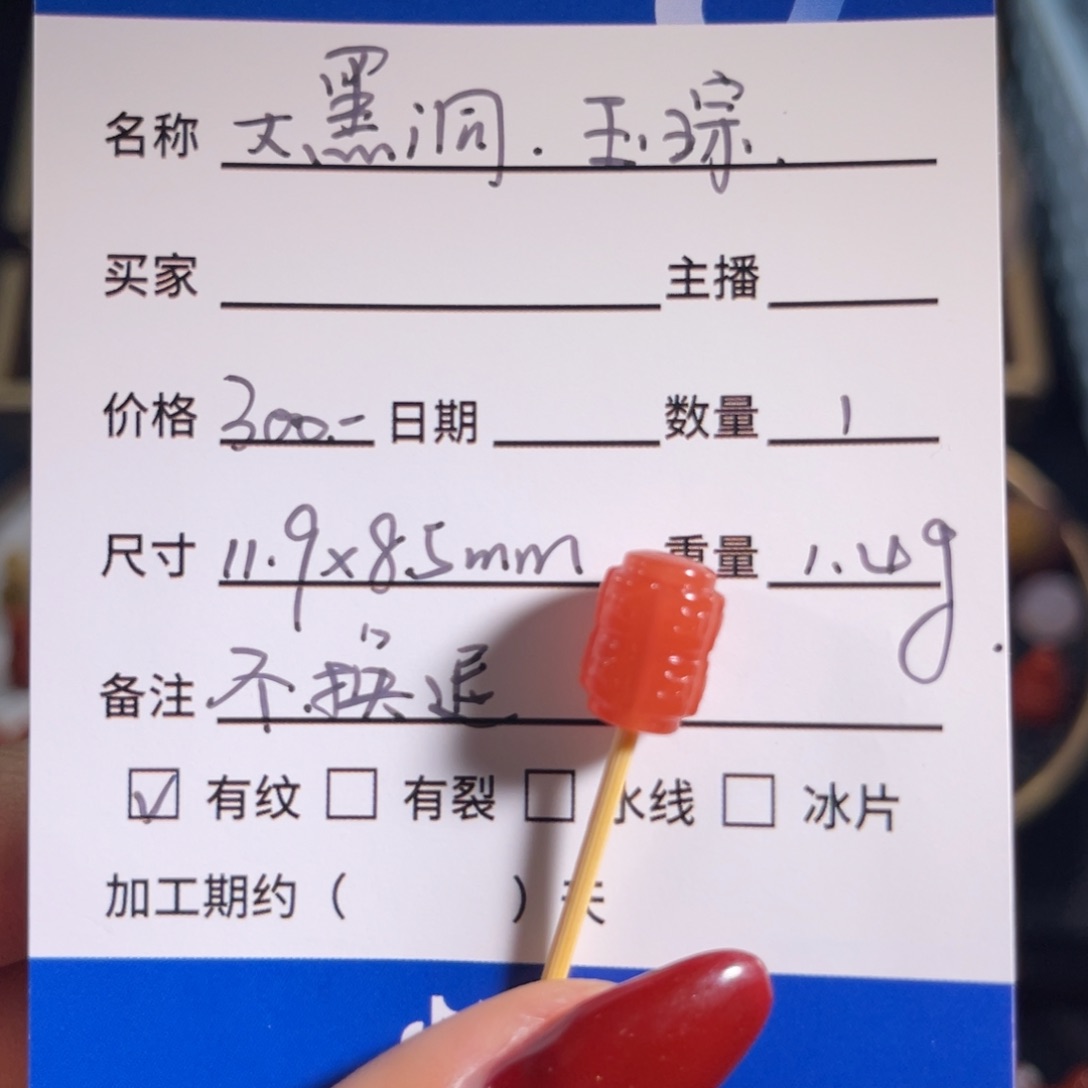 名称 大黑洞.玉琮.
买家 主播
价格 300.- 日期 数量 1
尺寸 11.9×8.5mm 重量 1.4g
备注 不换退
☑ 有纹 □ 有裂 □ 水线 □ 冰片
加工期约（ ）天